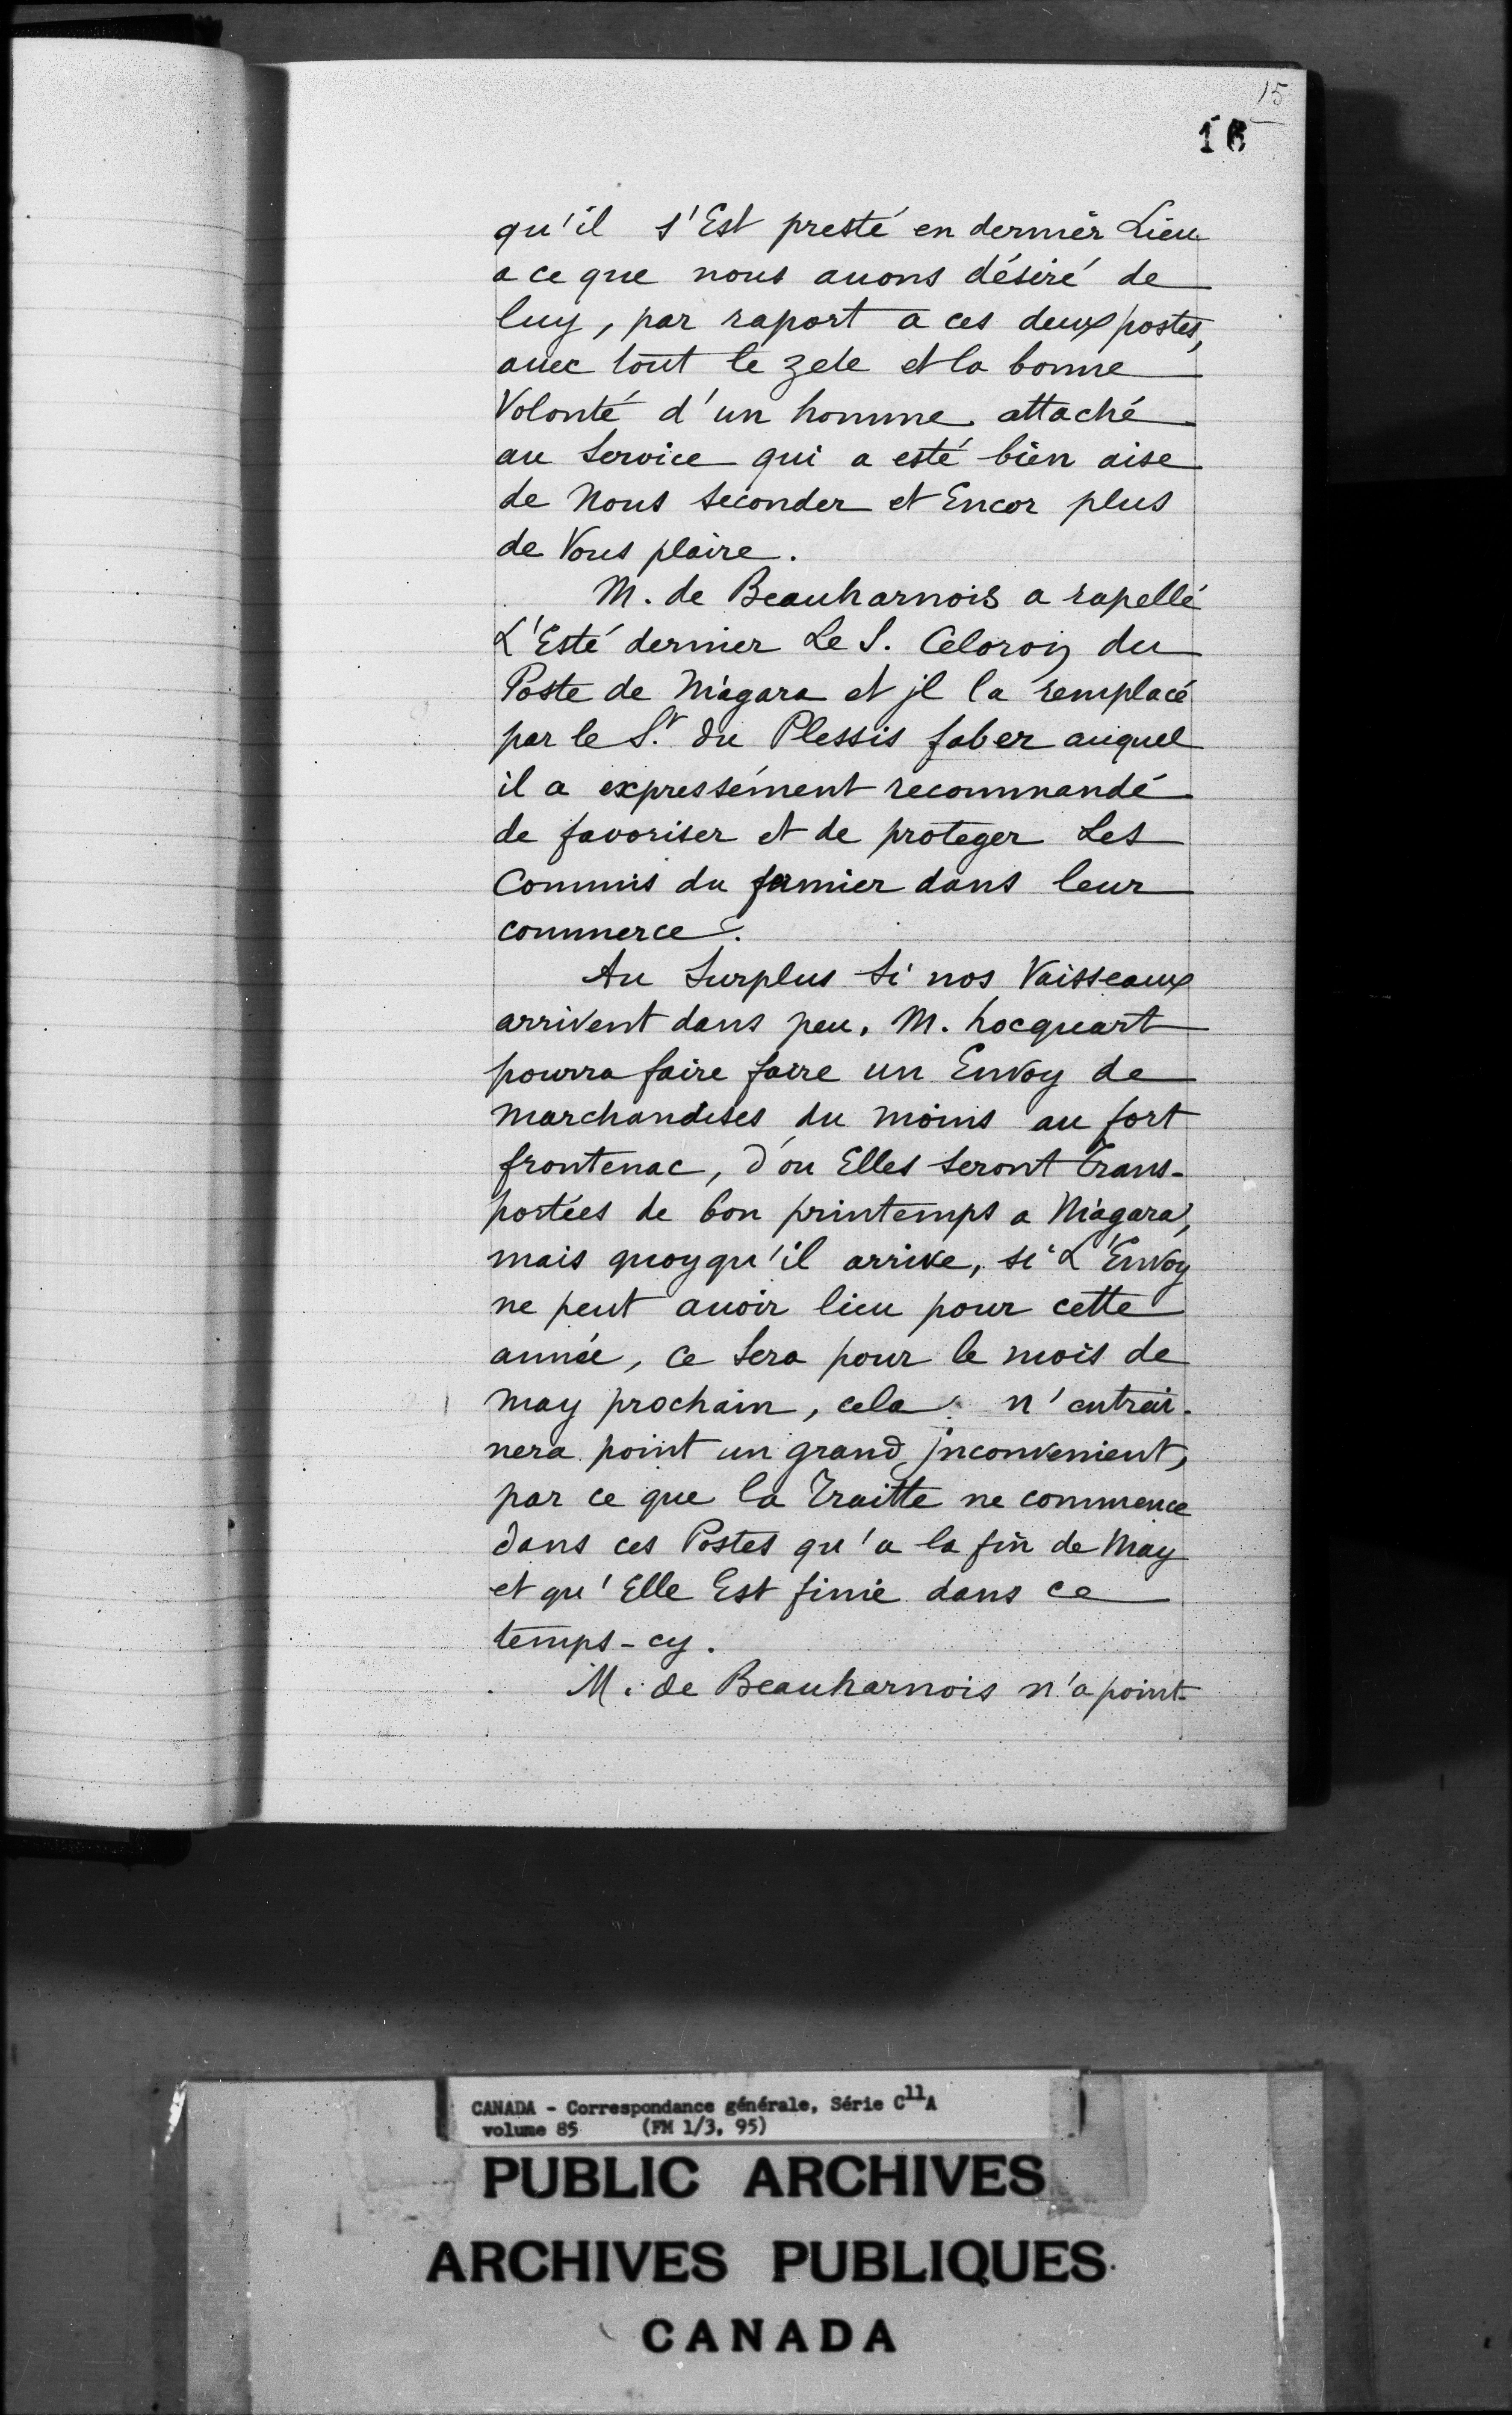 15
16
qu'il s'Est presté en dernier Lieu
a ce que nous auons désiré de
luy, par raport a ces deux postes,
auec tout le zele et la bonne
Volonté d'un homme attaché
au Service qui a esté bien aise
de Nous seconder et Encor plus
de Vous plaire.
M. de Beauharnois a rapellé
L'Esté dernier Le S. Celoron du
Poste de Niagara et jl la remplacé
par le S.r du Plessis faber auquel
il a expressément recommandé
de favoriser et de proteger Les
Commis du fermier dans leur
commerce.
Au Surplus Si nos Vaisseaux
arrivent dans peu, M. hocquart
pourra faire faire un Envoy de
marchandises du moins au fort
frontenac, d'ou Elles seront Trans-
portées de bon printemps a Niagara,
mais quoyqu'il arrive, si L'Envoy
ne peut auoir lieu pour cette
année, ce sera pour le mois de
may prochain, cela n'entrai-
nera point un grand jnconvenient,
par ce que la Traitte ne commence
dans ces Postes qu'a la fin de May
et qu'Elle Est finie dans ce
temps-cy.
M. de Beauharnois n'a point
CANADA - Correspondance générale, Série C11A
volume 85 (FM 1/3, 95)
PUBLIC ARCHIVES
ARCHIVES PUBLIQUES
CANADA